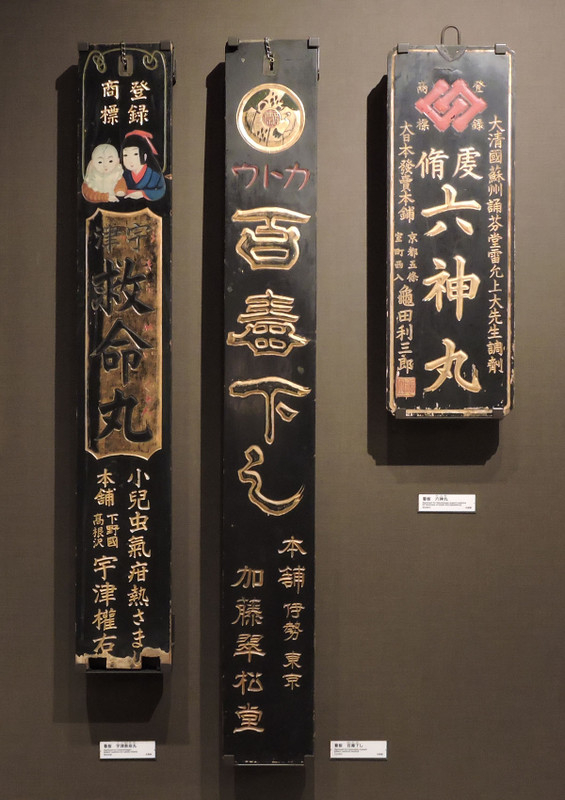 登録
商標
宇津
救命丸
小兒虫氣疳熱さま
本舗
下野國
高根沢
宇津權右
カトウ
百毒下し
本舗 伊勢 東京
加藤翠松堂
登錄
商標
大清國蘇州誦芬堂雷允上大先生調劑
虔脩
六神丸
大日本發賣本鋪
京都五條
室町西入
龜田利三郎
看板 宇津救命丸
看板 百毒下し
看板 六神丸